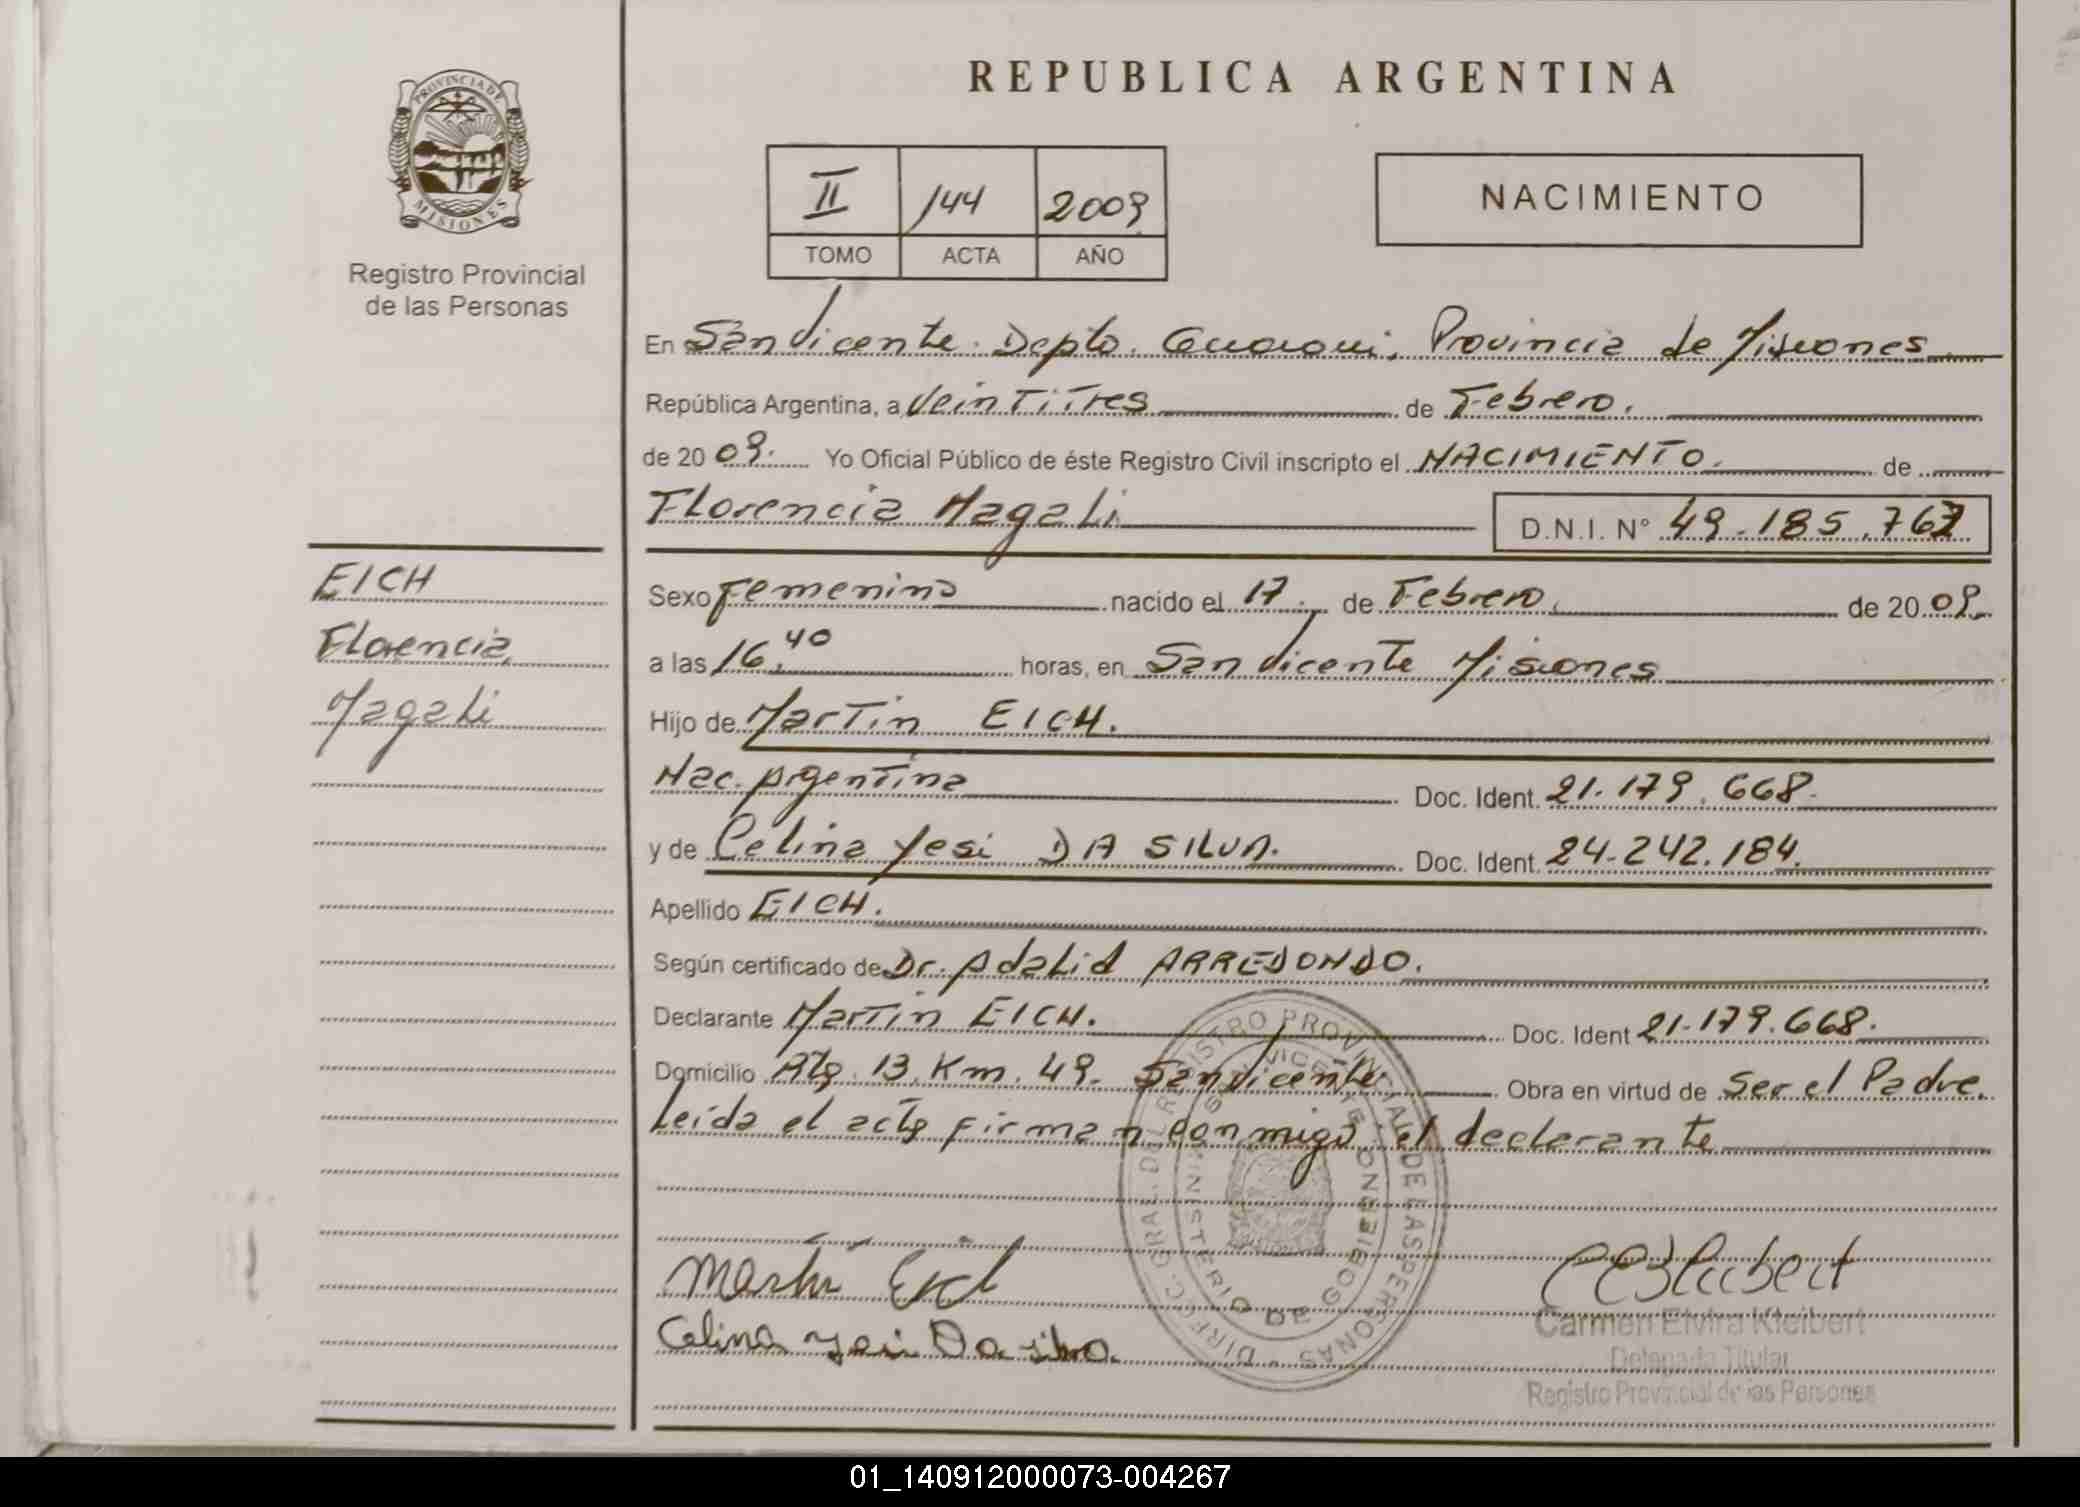 REPUBLICA ARGENTINA
PROVINCIA DE MISIONES
Registro Provincial
de las Personas
II 144 2009
TOMO ACTA AÑO
NACIMIENTO
En San Vicente. Depto. Guarani. Provincia de Misiones
República Argentina, a Veintitres de Febrero.
de 20 09. Yo Oficial Público de éste Registro Civil inscripto el NACIMIENTO. de
Florencia Magali D.N.I. Nº 49.185.767
EICH
Florencia
Magali
Sexo Femenino nacido el 17. de Febrero. de 20 09.
a las 16,40 horas, en San Vicente Misiones
Hijo de Martin EICH.
Nac. Argentina Doc. Ident. 21.179.668.
y de Celina Yesi DA SILVA. Doc. Ident. 24.242.184.
Apellido EICH.
Según certificado de Dr. Adalid ARREDONDO.
Declarante Martin EICH. Doc. Ident 21.179.668.
Domicilio Rta. 13. Km. 49. San Vicente Obra en virtud de Ser el Padre.
Leída el acta firman conmigo el declarante
DIREC. GRAL. DEL REGISTRO PROVINCIAL DE LAS PERSONAS
MINISTERIO DE GOBIERNO
SAN VICENTE
MISIONES
Martin Eich
Celina Yesi Da silva.
Carmen Elvira Kleibert
Delegada Titular
Registro Provincial de las Personas
01_140912000073-004267